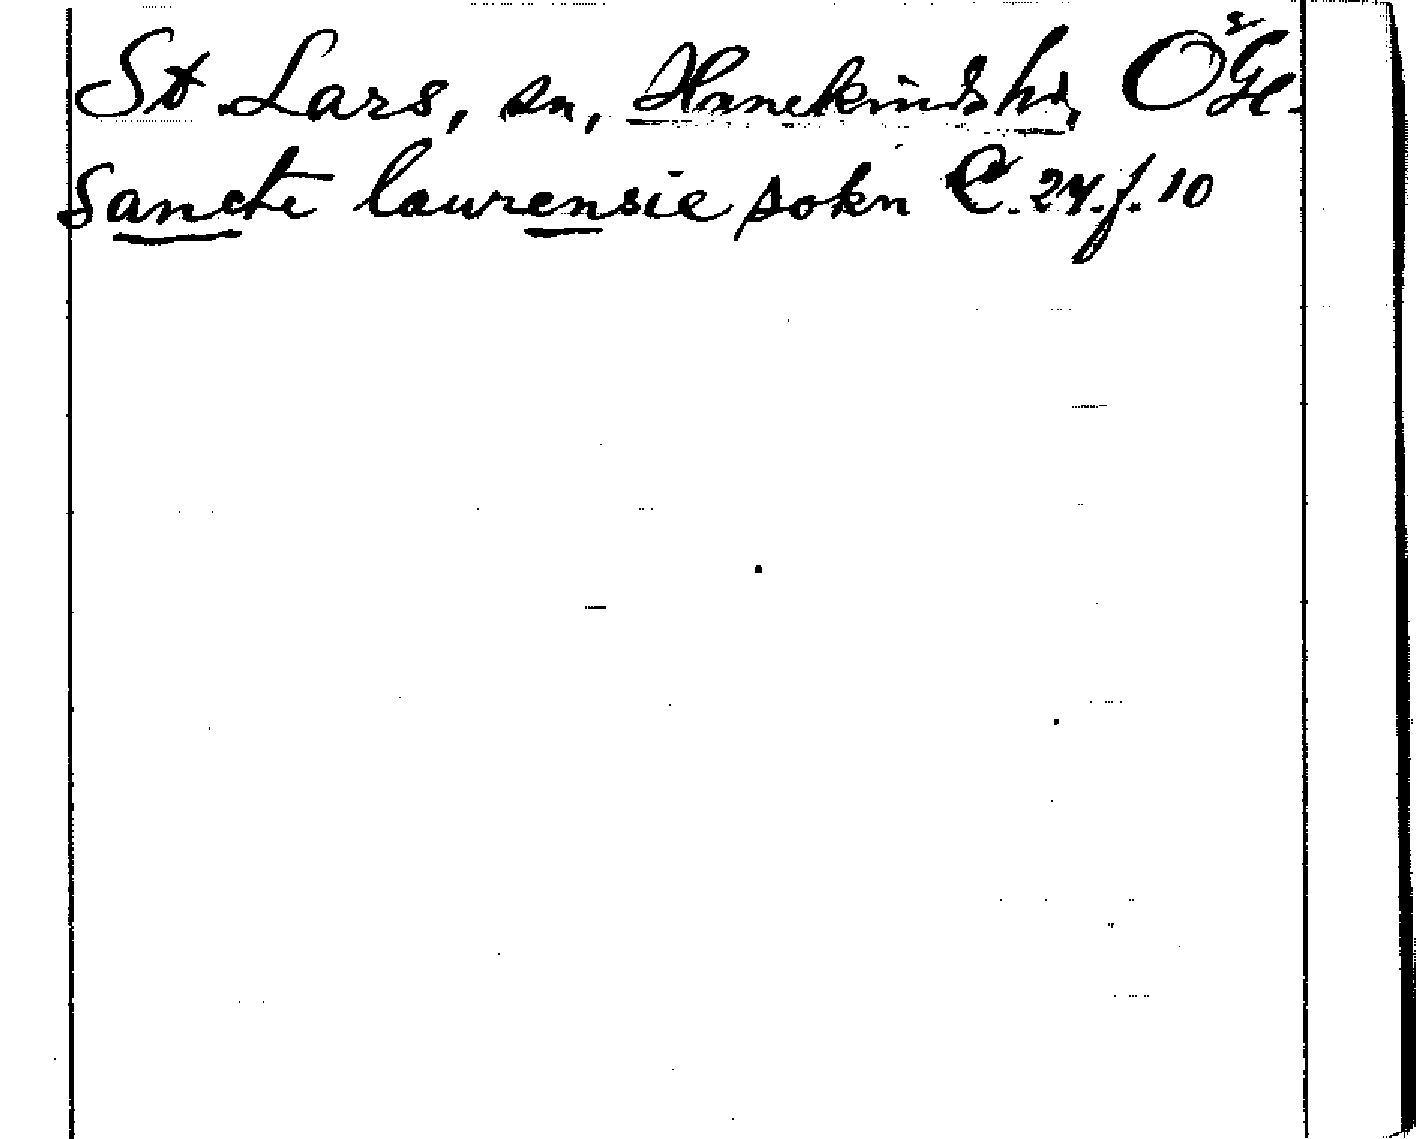 St Lars, sn, Hanekinds hd, ÖGl.
Sancte laurensie sokn C. 24. f. 10